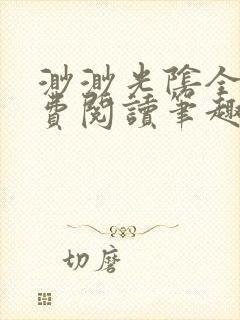 渺渺光陰全
費閱讀筆趣
切磨